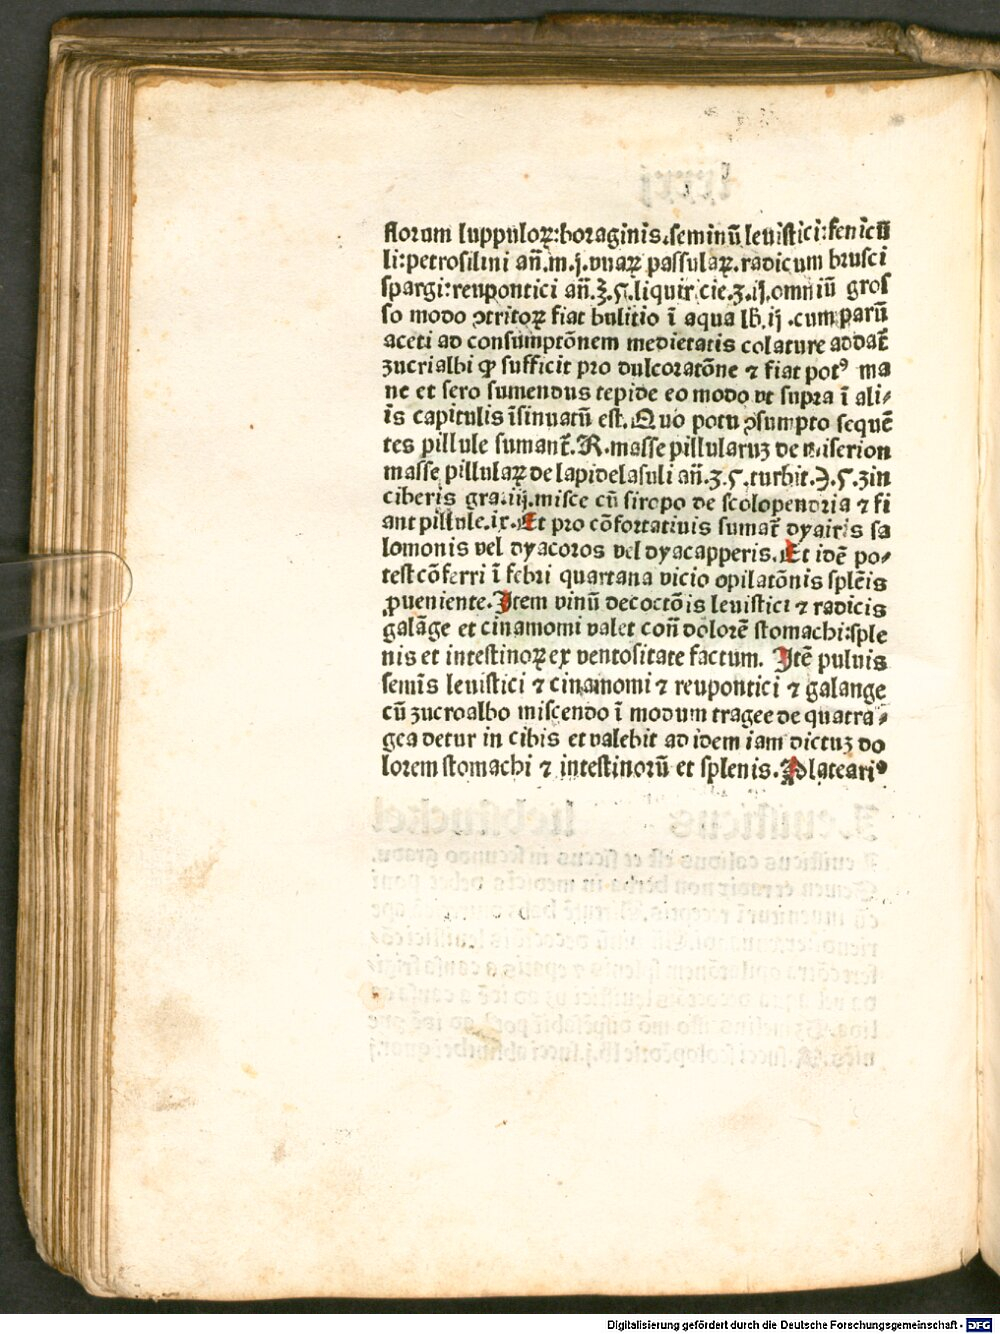 florum luppuloꝝ:boraginis.seminū leuistici:fenicū
li:petrosilini añ.m.j.vuaꝝ passulaꝝ.radicum brusci
spargi:reupontici añ.ʒ.ς.liquiricie.ʒ.ij.omniū gros
so modo ↄtritoꝝ fiat bulitio ī aqua lb.ij.cum parū
aceti ad consumptōnem medietatis colature addat̄
zucrialbi ꝙ sufficit pro dulcoratōne ⁊ fiat potꝰ ma
ne et sero sumendus tepide eo modo vt supra ī ali⸗
is capitulis īsinuatū est. Quo potu ↄsumpto sequē
tes pillule sumant̄.R.masse pillularuꝫ de miserion
masse pillulaꝝ de lapidelasuli añ.ʒ.ς.turbit.℈.ς.zin
ciberis gra.iij.misce cū siropo de scolopendria ⁊ fi
ant pillule.ix.Et pro cōfortatiuis sumat̄ dyairis sa
lomonis vel dyacoros vel dyacapperis.Et idē po⸗
test cōferri ī febri quartana vicio opilatōnis splēis
ꝓueniente.Item vinū decoctōis leuistici ⁊ radicis
galāge et cinamomi valet coñ dolorē stomachi:sple
nis et intestinoꝝ ex ventositate factum. Itē puluis
semīs leuistici ⁊ cinamomi ⁊ reupontici ⁊ galange
cū zucroalbo miscendo ī modum tragee de quatra⸗
gea detur in cibis et valebit ad idem iam dictuꝫ do
lorem stomachi ⁊ intestinorū et splenis.Plateariꝰ
Digitalisierung gefördert durch die Deutsche Forschungsgemeinschaft - DFG